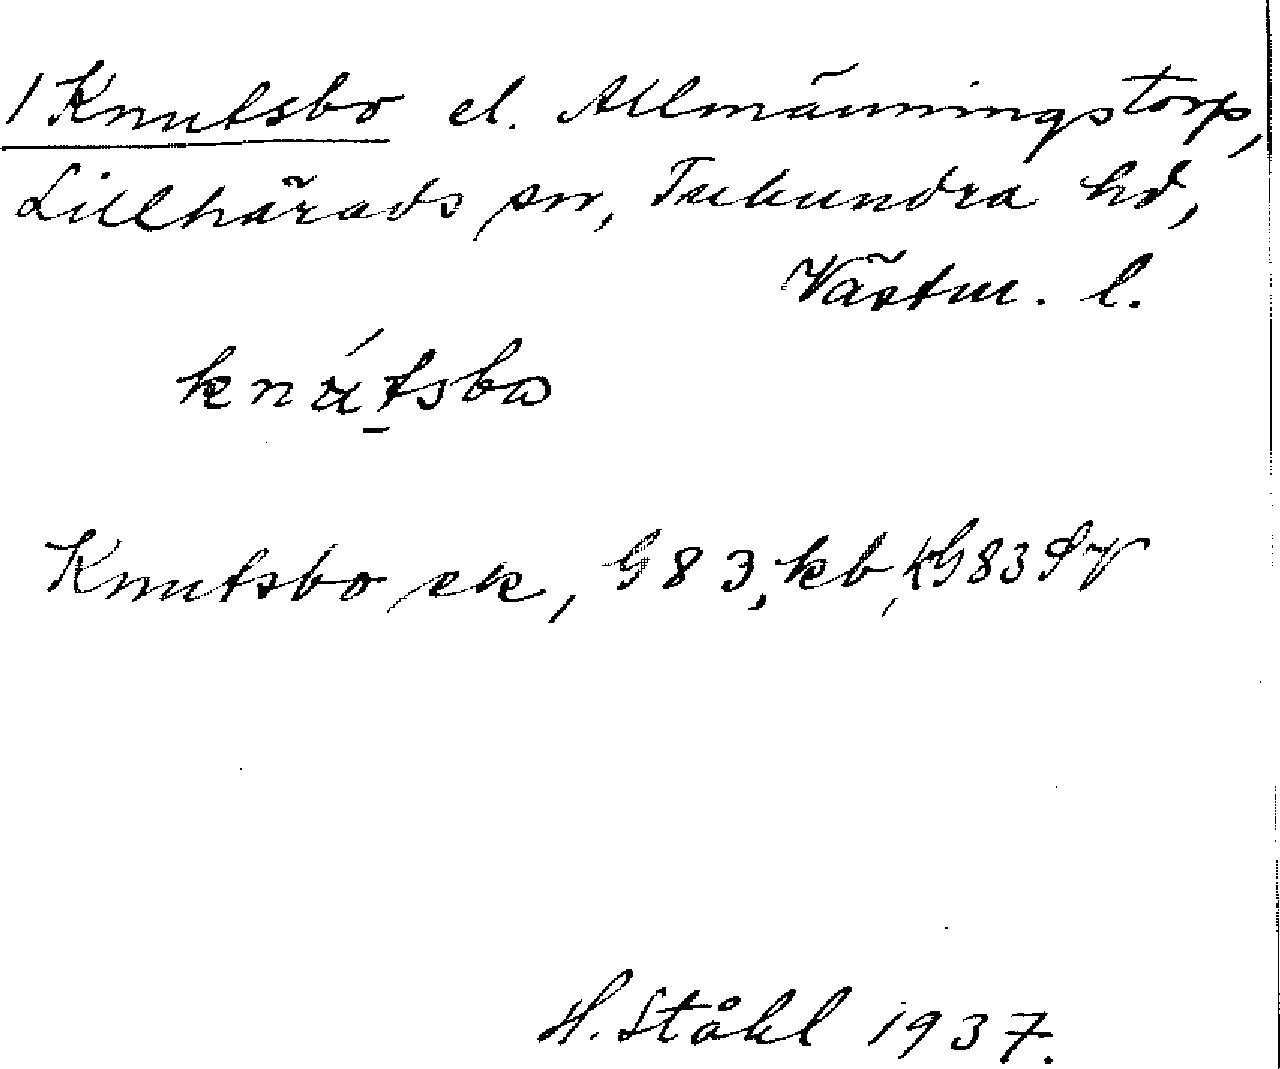 1 Knutsbo el. Allmänningstorp,
Lillhärads sn, Tuhundra hd,
Västm. l.
Knutsbo ek, G 83, kb, KG 83
H. Ståhl 1937.